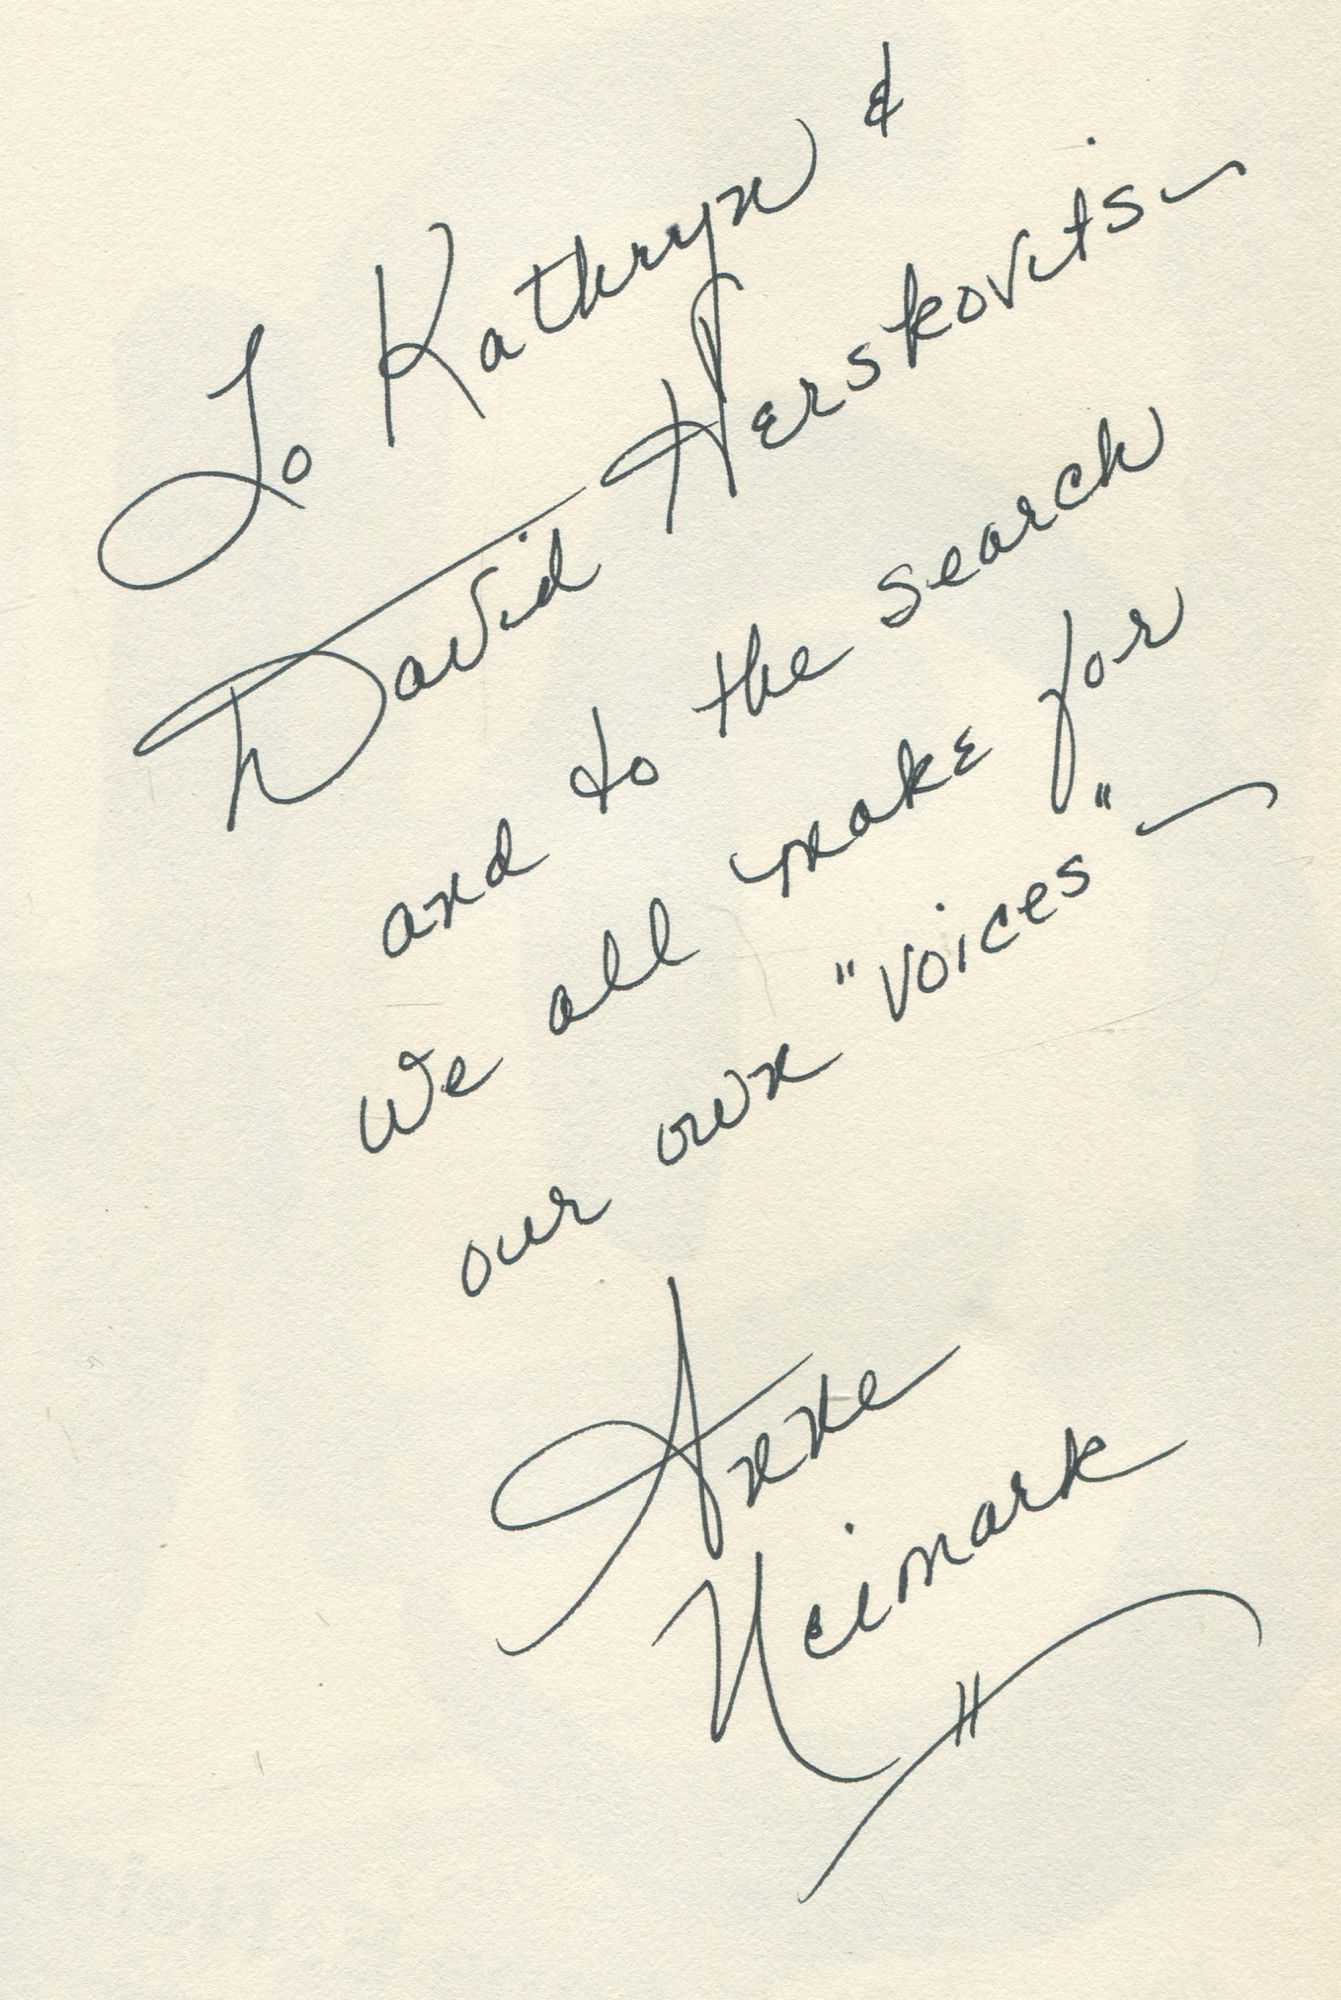 To Kathryn &
David Herskovits—
and to the search
we all make for
our own "voices"—
Anne
Neimark